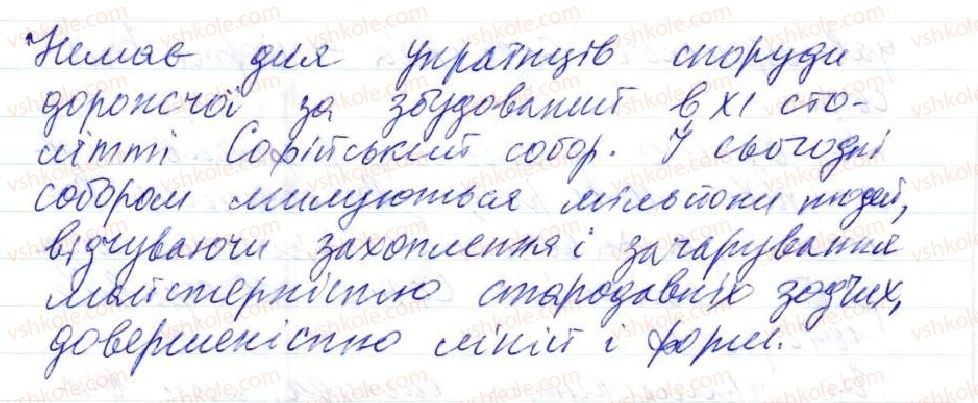 Немає для українців споруди
дорожчої за збудований в XI сто-
літті Софійський собор. І сьогодні
собором милуються мільйони людей,
відчуваючи захоплення і зачарування
майстерністю стародавніх зодчих,
довершеністю ліній і форм.